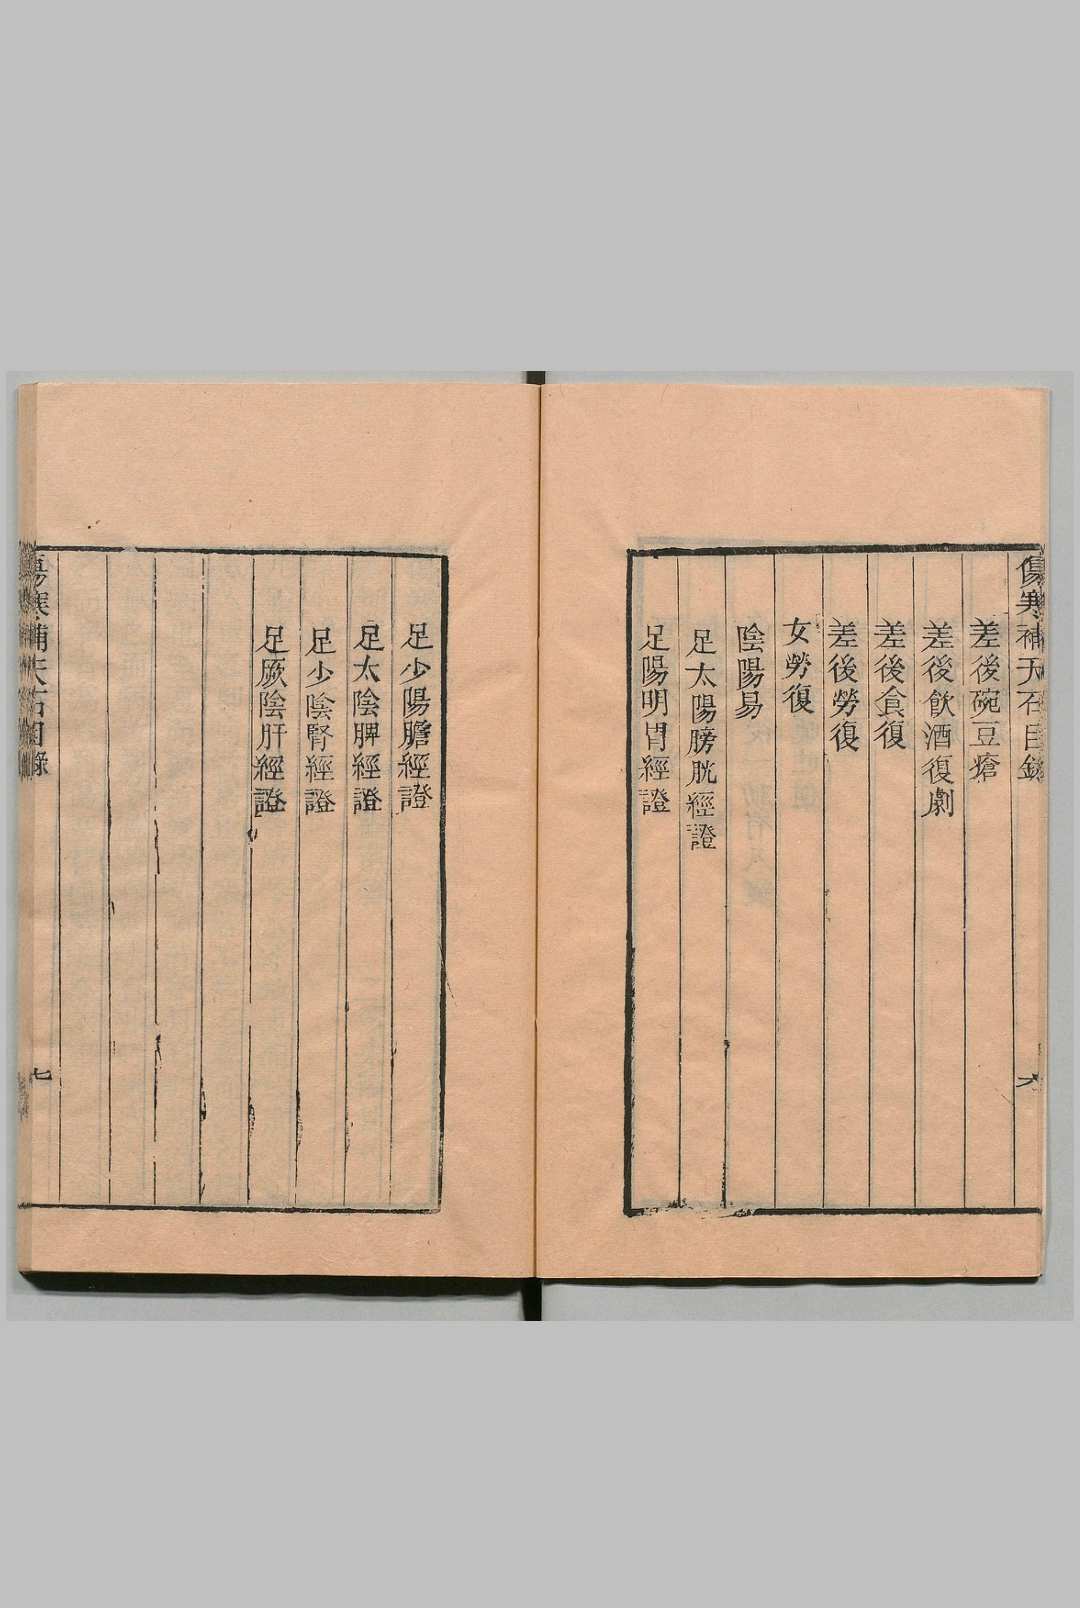 傷寒補天石目錄
差後碗豆瘡
差後飲酒復劇
差後食復
差後勞復
女勞復
陰陽易
足太陽膀胱經證
足陽明胃經證
六
足少陽膽經證
足太陰脾經證
足少陰腎經證
足厥陰肝經證
傷寒補天石目錄
七